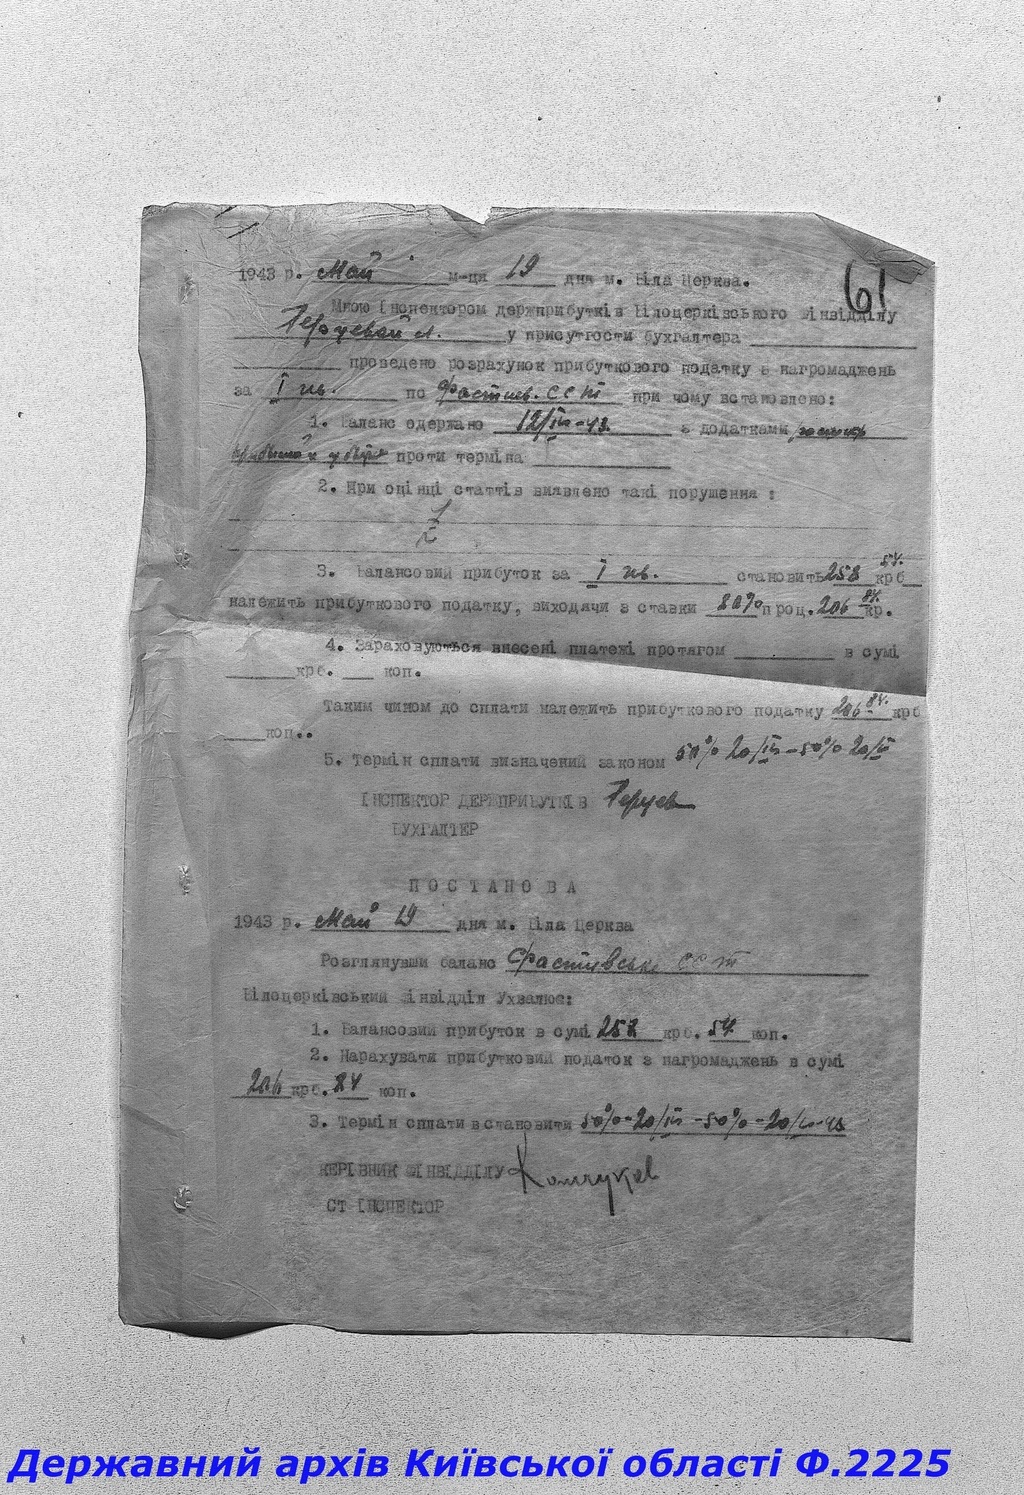 61
1943 р. Май м-ця 19 дня м. Біла Церква.
Мною Інспектором держприбутків Білоцерківського Фінвідділу
у присутности бухгалтера
проведено розрахунок прибуткового податку з нагромаджень
за І кв. по Фастив. ССТ при чому встановлено:
1. Баланс одержано 12/IV-43. з додатками
проти терміна
2. При оцінці статтів виявлено такі порушення :
Z
3. Балансовий прибуток за І кв. становить 258 54. крб
належить прибуткового податку, виходячи з ставки 80% проц. 206 84. кр.
4. Зараховуються внесені платежі протягом в сумі
крб. коп.
Таким чином до сплати належить прибуткового податку 206 84. крб
коп..
5. Термін сплати визначений законом 50% 20/IV-50% 20/
ІНСПЕКТОР ДЕРЖПРИБУТКІВ
БУХГАЛТЕР
ПОСТАНОВА
1943 р. Май 19 дня м. Біла Церква
Розглянувши баланс Фастівське ССТ
Білоцерківський Фінвідділ Ухвалює:
1. Балансовий прибуток в сумі 258 крб. 54 коп.
2. Нарахувати прибутковий податок з нагромаджень в сумі
206 крб. 84 коп.
3. Термін сплати встановити 50%-20/IV-50%-20/
КЕРІВНИК ФІНВІДДІЛУ
СТ ІНСПЕКТОР
Державний архів Київської області Ф.2225